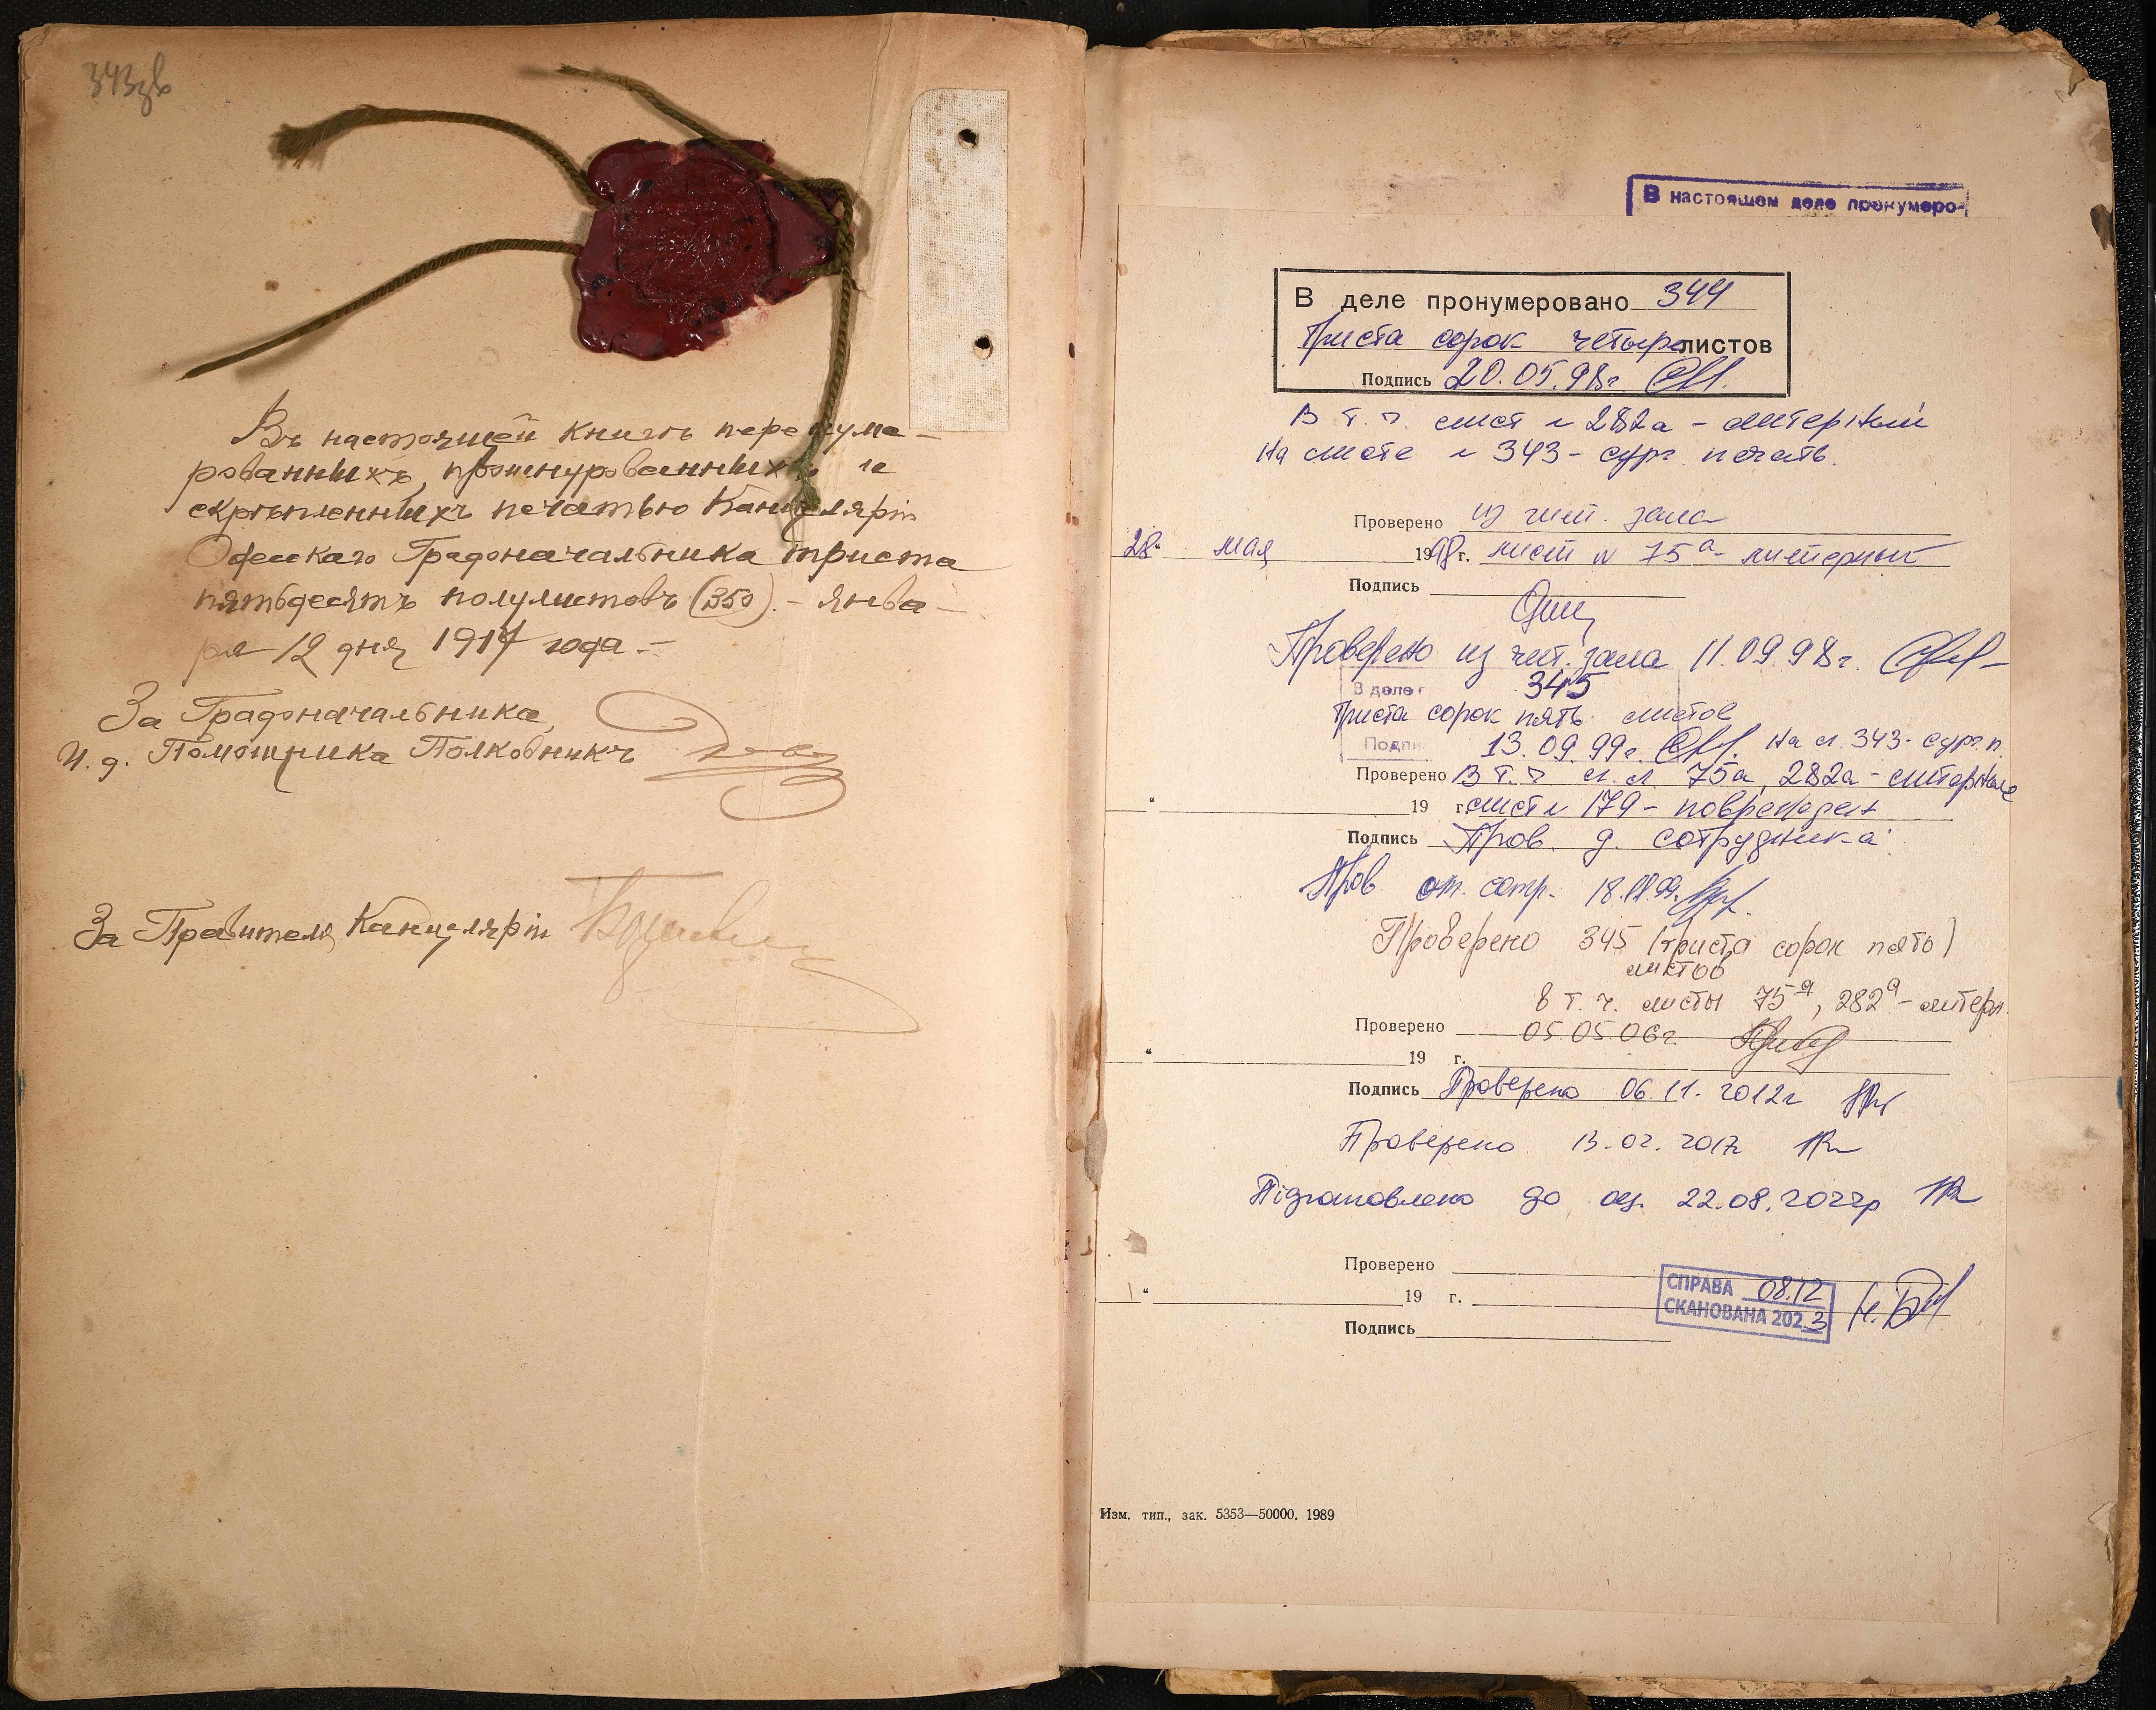 343зв
Въ настоящей книгѣ перенуме-
рованныхъ, прошнурованныхъ и
скрѣпленныхъ печатью Канцеляріи
Одесскаго Градоначальника триста
пятьдесятъ полулистовъ (350). - Янва-
ря 12 дня 1917 года -
За Градоначальника,
И. д. Помощника Полковникъ
За Правителя Канцеляріи
В настоящем деле пронумеро-
В деле пронумеровано 344
Триста сорок четыре листов
Подпись 20.05.98г.
В т. ч. лист № 282а - литерный
На листе № 343 - сург. печать.
Проверено из чит. зала
28 " мая 1998 г. лист № 75а - литерный
Подпись
Проверено из чит. зала 11.09.98г.
В деле 345
триста сорок пять листов
Подпи 13.09.99г. На л. 343 - сург. п.
Проверено В т. ч. л. л. 75а, 282а - литерные
" 19 г. лист № 179 - поврежден
Подпись Пров. д. сотрудника
Пров от. сотр. 18.11.99.
Проверено 345 (триста сорок пять)
листов
в т. ч. листы 75а, 282а - литерн.
Проверено 05.05.06г.
" 19 г.
Подпись Проверено 06.11.2012г
Проверено 13.02.2017г
Підготовлено до оц. 22.08.2022р
Проверено
" 19 г.
СПРАВА 08.12
СКАНОВАНА 2023
Подпись
Изм. тип., зак. 5353—50000. 1989